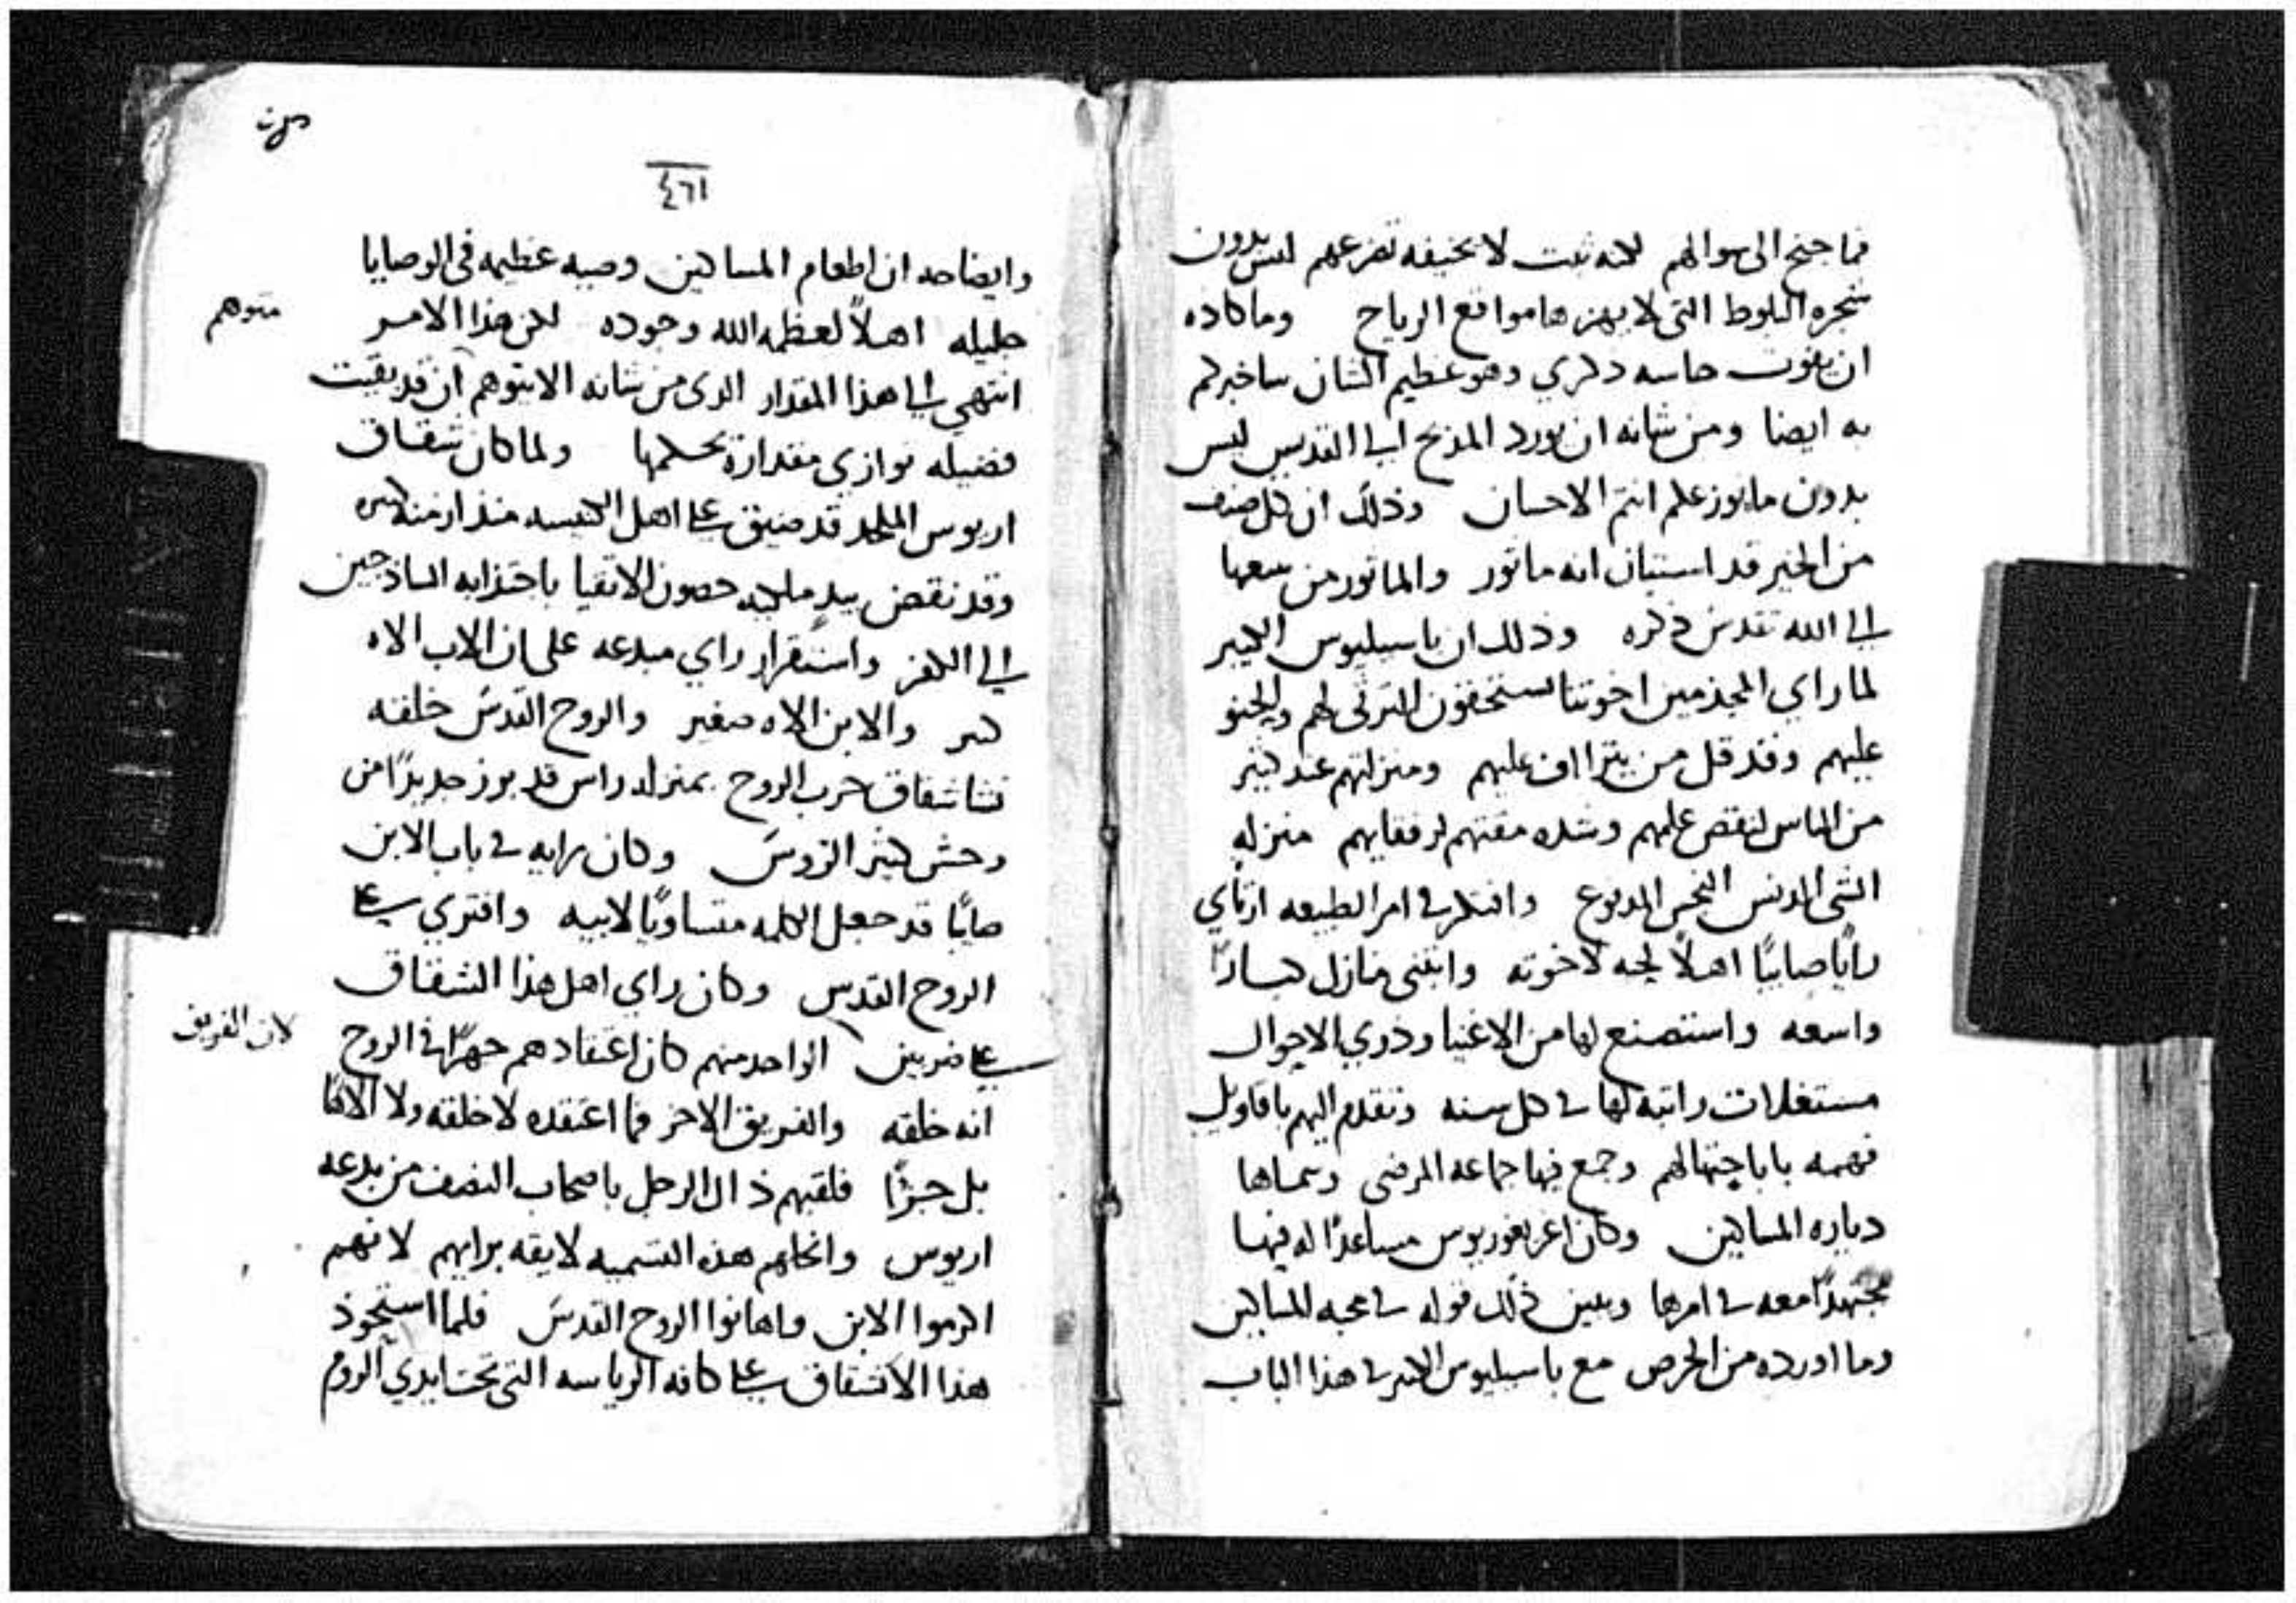 فما جنح الى سوالهم لكنه ثبت لا تخيفه تفزعهم ليس بدون
شجره البلوط التى لا يهزها مواقع الرياح وما كاده
ان يفوت حاسه ذكري وهو عظيم الشان ساخبركم
به ايضا ومن شانه ان يورد المديح الى القديس ليس
بدون ما يوزعكم انتم الاحسان وذلك ان كل صنف
من الخير قد استبان انه ماثور والماثور من سعها
الى الله تقدس ذكره وذلك ان باسيليوس الكبير
لما راي المجذمين اخوتنا يستحقون الترثى لهم والحنو
عليهم وقد قل من يتراأف عليهم ومنزلتهم عند كثير
من الناس لنقص علمهم وشده مقتهم لرفقايهم منزله
الشى المدنس النجس المدفوع وافتكر فى امر الطبيعه ارتاي
راياً صايباً اهلاً لحبه لاخوته وابتنى منازل كباراً
واسعه واستصنع لها من الاغنيا وذوي الاحوال
مستغلات راتبه لها فى كل سنه وتقدم اليهم باقاويل
فهمه باباحتهالهم وجمع فيها جماعه المرضى وسماها
دياره المساكين وكان اغريغوريوس مساعداً له فيها
مجتهداً معه فى امرها ويبين ذلك قوله فى محبه المساكين
وما اورده من الحرص مع باسيليوس الكبير فى هذا الباب
٤٦١
وايضاحه ان اطعام المساكين وصيه عظيمه فى الوصايا
جليله اهلاً لعظمه الله وجوده لكن هذا الامر
متوهم
انتهي الى هذا المقدار الدى من شانه الا يتوهم ان قد بقيت
فضيله توازي مقداره بحكمها ولما كان شقاق
اريوس الملحد قد ضيق على اهل الكنيسه منذ ازمنه كثيره
وقد نقض بيد حصون الاتقيا باجتذابه الساذجين
الى الكفر واستقرار راي مبدعه على ان الاب الاه
كبير والابن الاه صغير والروح القدس خلقه
نشا شقاق حرب الروح بمنزله راس قد برز جديداً من
وحش كثير الروس وكان رايه فى باب الابن
صايباً قد جعل الكلمه متساوياً لابيه وافتري على
الروح القدس وكان راي اهل هذا الشقاق
على ضربين الواحد منهم كان اعتقادهم جهراً فى الروح
لان الفريق
انه خلقه والفريق الاخر فما اعتقده لا خلقه ولا الاهاً
بل جزءاً فلقبهم ذاك الرجل باصحاب النصف من بدعه
اريوس وانحلهم هذه التسميه لايقه برايهم لانهم
اكرموا الابن واهانوا الروح القدس فلما استحوذ
هذا الانشقاق على كافه الرياسه التى تحت ايدي الروم